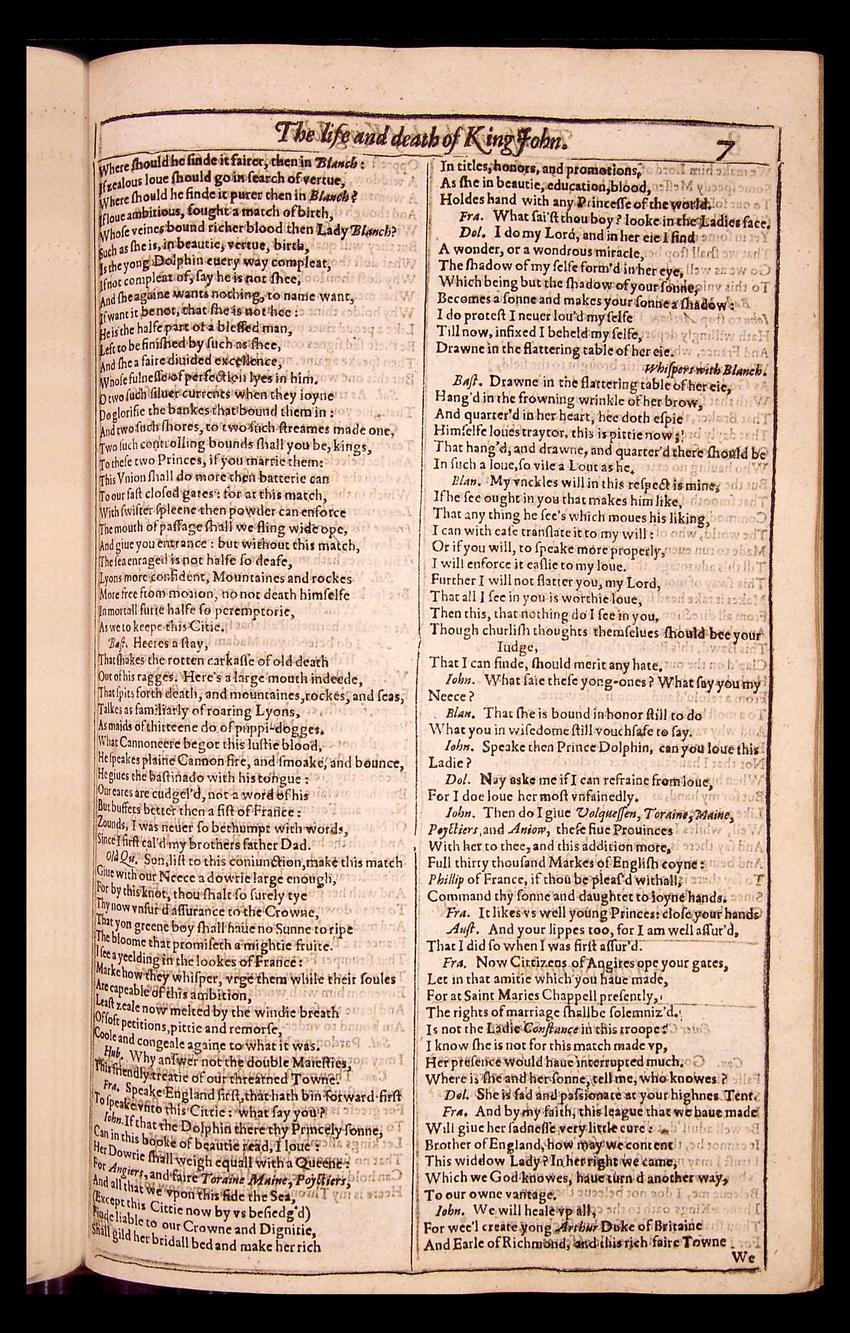 The life and death of King Iohn.
7
Where should he finde it fairer, then in Blanch:
If zealous loue should go in search of vertue,
Where should he finde it purer then in Blanch?
If loue ambitious, sought a match of birth,
Whose veines bound richer blood then Lady Blanch?
Such as she is, in beautie, vertue, birth,
Is the yong Dolphin euery way compleat,
If not compleat of, say he is not shee,
And she againe wants nothing, to name want,
If want it be not, that she is not hee:
He is the halfe part of a blessed man,
Left to be finished by such as shee,
And she a faire diuided excellence,
Whose fulnesse of perfection lyes in him.
O two such siluer currents when they ioyne
Do glorifie the bankes that bound them in:
And two such shores, to two such streames made one,
Two such controlling bounds shall you be, kings,
To these two Princes, if you marrie them:
This Vnion shall do more then batterie can
To our fast closed gates: for at this match,
With swifter spleene then powder can enforce
The mouth of passage shall we fling wide ope,
And giue you entrance: but without this match,
The sea enraged is not halfe so deafe,
Lyons more confident, Mountaines and rockes
More free from motion, no not death himselfe
In mortall furie halfe so peremptorie,
As we to keepe this Citie.
Bast. Heeres a stay,
That shakes the rotten carkasse of old death
Out of his ragges. Here's a large mouth indeede,
That spits forth death, and mountaines, rockes, and seas,
Talkes as familiarly of roaring Lyons,
As maids of thirteene do of puppi-dogges.
What Cannoneere begot this lustie blood,
He speakes plaine Cannon fire, and smoake, and bounce,
He giues the bastinado with his tongue:
Our eares are cudgel'd, not a word of his
But buffets better then a fist of France:
Zounds, I was neuer so bethumpt with words,
Since I first cal'd my brothers father Dad.
Old Qu. Son, list to this coniunction, make this match
Giue with our Neece a dowrie large enough,
For by this knot, thou shalt so surely tye
Thy now vnsur'd assurance to the Crowne,
That yon greene boy shall haue no Sunne to ripe
The bloome that promiseth a mightie fruite.
I see a yeelding in the lookes of France:
Marke how they whisper, vrge them while their soules
Are capeable of this ambition,
Least zeale now melted by the windie breath
Of soft petitions, pittie and remorse,
Coole and congeale againe to what it was.
Hub. Why answer not the double Maiesties,
This friendly treatie of our threatned Towne.
Fra. Speake England first, that hath bin forward first
To speake vnto this Cittie: what say you?
Iohn. If that the Dolphin there thy Princely sonne,
Can in this booke of beautie read, I loue:
Her Dowrie shall weigh equall with a Queene:
For Angiers, and faire Toraine Maine, Poyctiers,
And all that we vpon this side the Sea,
(Except this Cittie now by vs besiedg'd)
Finde liable to our Crowne and Dignitie,
Shall gild her bridall bed and make her rich
In titles, honors, and promotions,
As she in beautie, education, blood,
Holdes hand with any Princesse of the world.
Fra. What sai'st thou boy? looke in the Ladies face.
Dol. I do my Lord, and in her eie I find
A wonder, or a wondrous miracle,
The shadow of my selfe form'd in her eye,
Which being but the shadow of your sonne,
Becomes a sonne and makes your sonne a shadow:
I do protest I neuer lou'd my selfe
Till now, infixed I beheld my selfe,
Drawne in the flattering table of her eie.
Whispers with Blanch.
Bast. Drawne in the flattering table of her eie,
Hang'd in the frowning wrinkle of her brow,
And quarter'd in her heart, hee doth espie
Himselfe loues traytor, this is pittie now;
That hang'd, and drawne, and quarter'd there should be
In such a loue, so vile a Lout as he.
Blan. My vnckles will in this respect is mine,
If he see ought in you that makes him like,
That any thing he see's which moues his liking,
I can with ease translate it to my will:
Or if you will, to speake more properly,
I will enforce it easlie to my loue.
Further I will not flatter you, my Lord,
That all I see in you is worthie loue,
Then this, that nothing do I see in you,
Though churlish thoughts themselues should bee your
Iudge,
That I can finde, should merit any hate.
Iohn. What saie these yong-ones? What say you my
Neece?
Blan. That she is bound in honor still to do
What you in wisedome still vouchsafe to say.
Iohn. Speake then Prince Dolphin, can you loue this
Ladie?
Dol. Nay aske me if I can refraine from loue,
For I doe loue her most vnfainedly.
Iohn. Then do I giue Volquessen, Toraine, Maine,
Poyctiers, and Aniow, these fiue Prouinces
With her to thee, and this addition more,
Full thirty thousand Markes of English coyne:
Phillip of France, if thou be pleas'd withall,
Command thy sonne and daughter to ioyne hands.
Fra. It likes vs well young Princes: close your hands
Aust. And your lippes too, for I am well assur'd,
That I did so when I was first assur'd.
Fra. Now Cittizens of Angires ope your gates,
Let in that amitie which you haue made,
For at Saint Maries Chappell presently,
The rights of marriage shallbe solemniz'd.
Is not the Ladie Constance in this troope?
I know she is not for this match made vp,
Her presence would haue interrupted much.
Where is she and her sonne, tell me, who knowes?
Dol. She is sad and passionate at your highnes Tent.
Fra. And by my faith, this league that we haue made
Will giue her sadnesse very little cure:
Brother of England, how may we content
This widdow Lady? In her right we came,
Which we God knowes, haue turn'd another way,
To our owne vantage.
Iohn. We will heale vp all,
For wee'l create yong Arthur Duke of Britaine
And Earle of Richmond, and this rich faire Towne
We